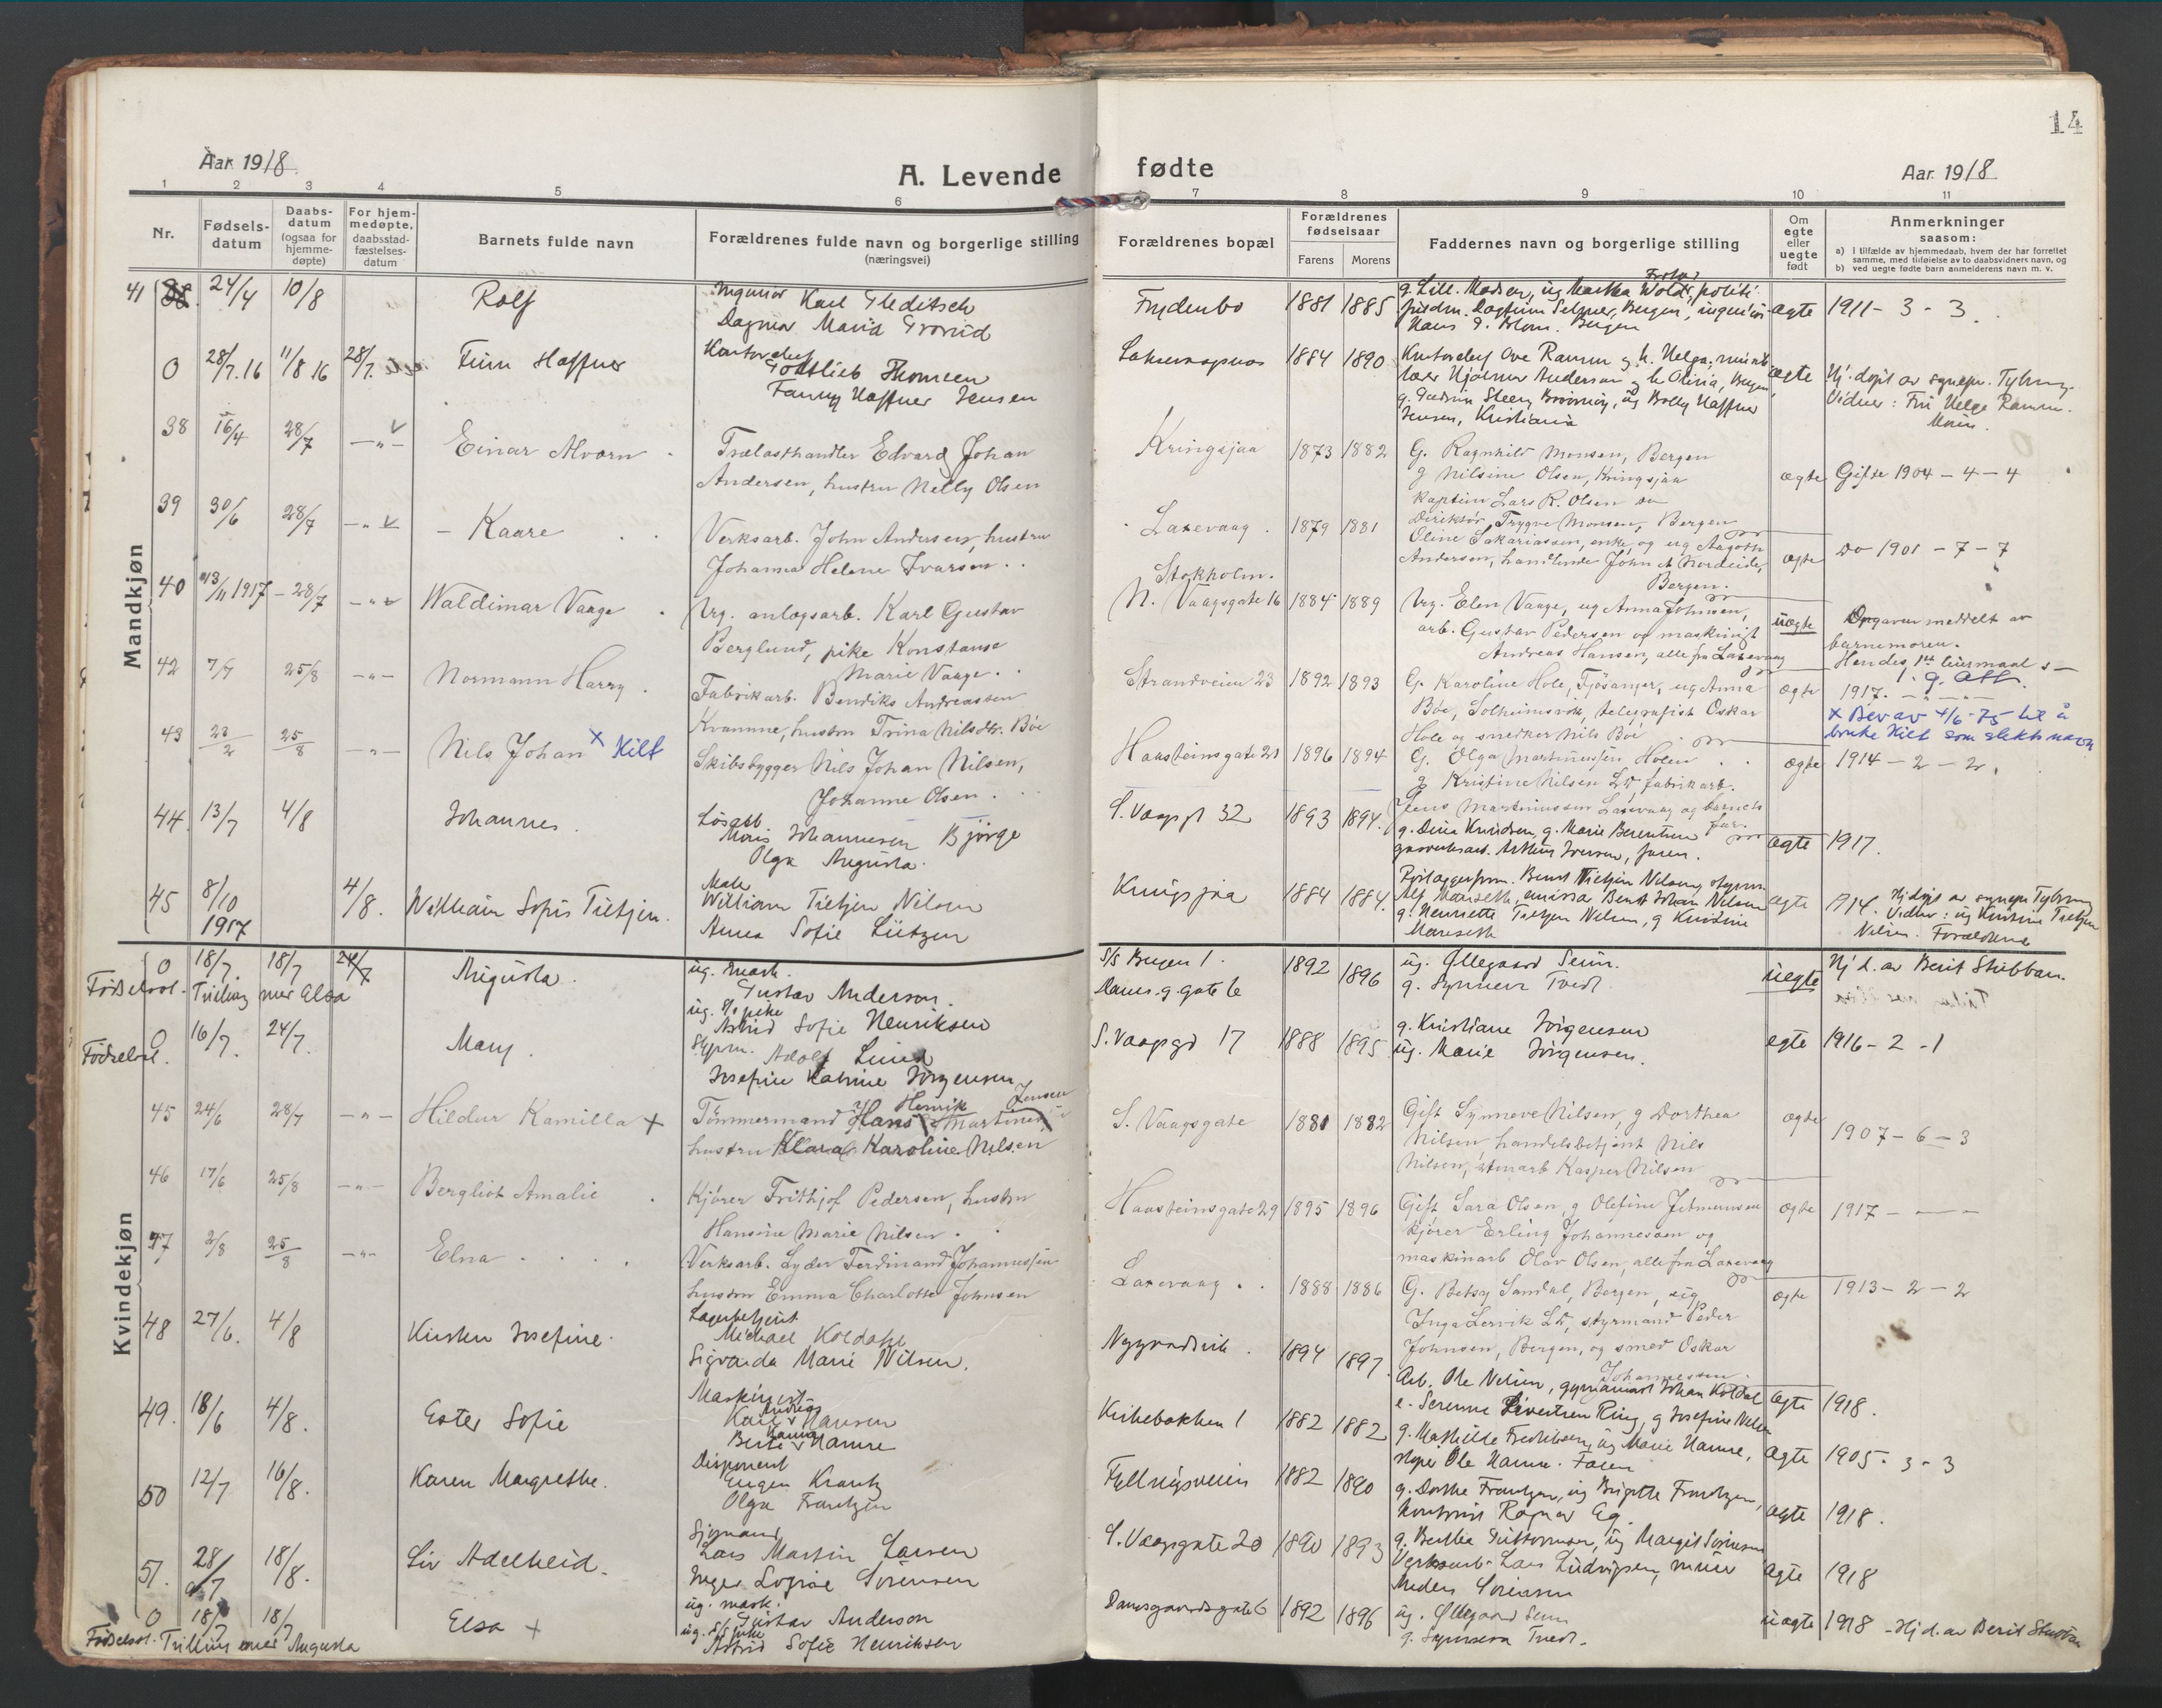 14
Aar 1918.
A. Levende fødte
Aar. 1918
1 2 3 4 5 6 7 8 9 10 11
Nr.
Fødsels-datum
Daabs-datum (ogsaa for hjemme-døpte)
For hjem-medøpte, daabsstad-fæstelses-datum
Barnets fulde navn
Forældrenes fulde navn og borgerlige stilling
(næringsvei)
Forældrenes bopæl
Forældrenes fødselsaar
Farens Morens
Faddernes navn og borgerlige stilling
Om egte eller uegte født
Anmerkninger
saasom:
a) I tilfælde av hjemmedaab, hvem der har forrettet samme, med tilføielse av to daabsvidners navn, og
b) ved uegte fødte barn anmelderens navn m. v.
Mandkjøn
41 24/4 10/8 Rolf
Ingeniør Karl Gleditsch
Dagmar Maria
Frydenbo 1881 1885
Hans Blom. Bergen
ægte 1911 - 3 - 3.
0 28/7.16 11/8 16 28/7. Finn Haffner
Kontorchef
Gottlieb Thomsen
Fanny Haffner Jensen
1884 1890
Kontorchef Ove Ramm g h. Helga;
Hjalmar Andersen g h Olivia, Bergen
Jensen, Kristiania
ægte
Hj. døpt av sognepr. Tybring.
Vidner: Fru Helga Ramm.
38 16/4 28/7 -"- Einar Alvorn
Trælasthandler Edvard Johan
Andersen, hustru Nelly Olsen
Kringsjaa 1873 1882
G. Ragnhild Monsen, Bergen
g Nilsine Olsen, Kringsjaa
Kaptein Lars R. Olsen do
Direktør Trygve Monsen, Bergen
ægte Gifte 1904 - 4 - 4
39 30/6 28/7 -"- Kaare
Verksarb. John Andersen, hustru
Johanna Helene Ivarsen
Laxevaag. 1879 1881
Oline Sakariassen, enke, og ug Aagoth
Andersen, handlende John A Nordeide,
Bergen.
ægte do 1901 - 7 - 7
40 13/11 1917 28/7 -"- Waldimar Vaage
Ug. anlægsarb. Karl Gustav
Berglund, pike Konstanse
Marie Vaage
Stokholm.
N. Vaagsgate 16 1884 1889
Ug. Elen Vaage, ug Anna Johnsen,
arb. Gustav Pedersen og maskinist
Andreas Hansen, alle fra Laxevaag
uægte
Opgaven meddelt av
barnemoren.
Hendes 1ste leiermaal
42 7/7 25/8 -"- Normann Harry
Fabrikarb. Bendiks Andreassen
Kvamme, hustru Trina Nilsdtr. Bøe
Strandveien 23 1892 1893
G. Karoline Hole, Fjøsanger, ug Anna
Bøe, Solheimsvik, telegrafist Oskar
Hole og snedker Nils Bøe
ægte 1917. -"-
x Bev av 4/6-75 til å
bruke Kilt som slektsnavn
43 23/2 25/8 -"- Nils Johan x Kilt
Skibsbygger Nils Johan Nilsen,
Johanne Olsen.
Haasteinsgate 21 1896 1894
G. Olga Martinussen Holen
g Kristine Nilsen Lv, fabrikarb.
Jens Martinussen Laxevaag og barnets
far.
ægte 1914 - 2 - 2.
44. 13/7 4/8 Johannes.
Løsarb
Johannesen Bjørge
Olga Augusta.
S. Vaagsgt 32 1893 1894.
g. Dina Knudsen, g. Marie Berentsen
Arthur Iversen, faren.
ægte 1917.
45 8/10 1917 4/8. William Sofus Tietjen.
William Tietjen Nilsen
Anna Sofie Lützen
Kringsjaa 1884 1884.
Bernt Tietjen Nilsen,
Alf Mareseth, Bernt Johan Nilsen
g. Henriette Tietjen Nilsen, g Kristine
Mareseth
ægte 1914.
Hj.døpt av sognepr. Tybring
Vidner: ug Kristine Tietjen
Nilsen. Forældrene
Kvindekjøn
0 18/7. 18/7 24/7 Augusta.
Fødselsst. Trilling med Elsa
ug. mask.
Gustav Anderson.
ug. pike
Astrid Sofie Henriksen
S/S Bergen 1.
Dams.g.gate 6 1892 1896
ug. Øllegaard Seim.
g. Synneva Tvedt.
uegte
Hj d. av Berit Stubban.
0 16/7. 24/7. Mary.
Fødselsst.
Styrm. Adolf Lund
Josefine Katrine Jørgensen
S. Vaagsgt 17 1888 1895
g. Kristiane Jørgensen
ug. Marie Jørgensen.
egte 1916 - 2 - 1
45 24/6 28/7 -"- Hildur Kamilla +
Tømmermand Hans Henrik Martines Jensen
hustru Klara Karoline Nilsen
S. Vaagsgate 1881 1882
Gift Synneve Nilsen, g Dorthea
Nilsen, handelsbetjent Nils
Nilsen, Kasper Nilsen
ægte 1907 - 6 - 3
46 17/6 25/8 -"- Bergliot Amalie
Kjører Frithjof Pedersen, hustru
Hansine Marie Nilsen
Haasteinsgate 29 1895 1896
Gift Sara Olsen, g Olefine Jetmundsen
kjører Erling Johannessen og
maskinarb Olav Olsen, alle fra Laxevaag
ægte 1917 - - -
47 2/8 25/8 -"- Elna
Verksarb. Lyder Ferdinand Johannessen
hustru Emma Charlotte Johnsen
Laxevaag 1888 1886
G. Betsy Sandal, Bergen, ug
Inga Lervik Lv, styrmand Peder
Johnsen, Bergen, og smed Oskar
Johannessen.
ægte 1913 - 2 - 2
48 27/6. 4/8 Kirsten Josefine.
Lagerbetjent
Michael Koldal
Sigvarda Marie Nilsen.
1894 1897.
Arb. Ole Nilsen, Johan Koldal
Ring, g Josefine Nilsen
ægte 1918.
49. 18/6 4/8. Ester Sofie
Maskinist
Karl Andreas Hansen
Berte Hanna Hamre
Kirkebakken 1 1882 1882
g. Mathilde Fredriksen, ug Marie Hamre,
Ole Hamre. Faren
ægte 1905 - 3 - 3
50 12/7 16/8. Karen Margrethe.
Disponent
Eugen Krantz
Olga Frantzen
Fyllingsveien 1882 1890
g. Dorthe Frantzen, ug Birgitte Frantzen,
Ragnar Eg.
ægte 1918.
51. 28/7 18/8. Liv Adelheid.
Sjømand
Lars Martin Larsen
Inger Lovise Sørensen
S. Vaagsgate 20 1890 1893
g. Berthe Guttormsen, ug Margit Sørensen
Verksarb. Lars Ludvigsen,
Anders Sørensen
ægte 1918
0 18/7 18/7 Elsa +
Fødselsst. Trilling med Augusta
ug. mask.
Gustav Anderson
ug. pike
Astrid Sofie Henriksen
Damsgaardsgate 6 1892 1896
ug. Øllegaard Seim
g. Synneva Tvedt.
uægte 1918 - Hj d. av Berit Stubban